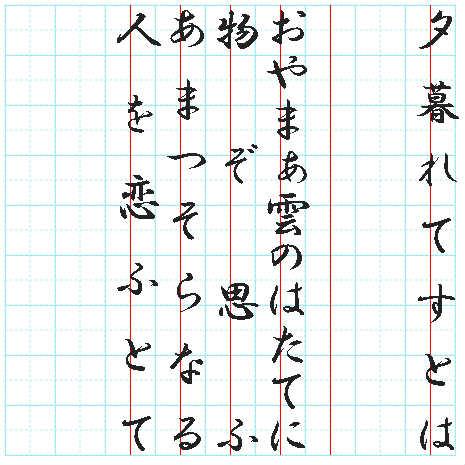 夕暮れてすとは
おやまあ雲のはたてに
物ぞ思ふ
あまつそらなる
人を恋ふとて